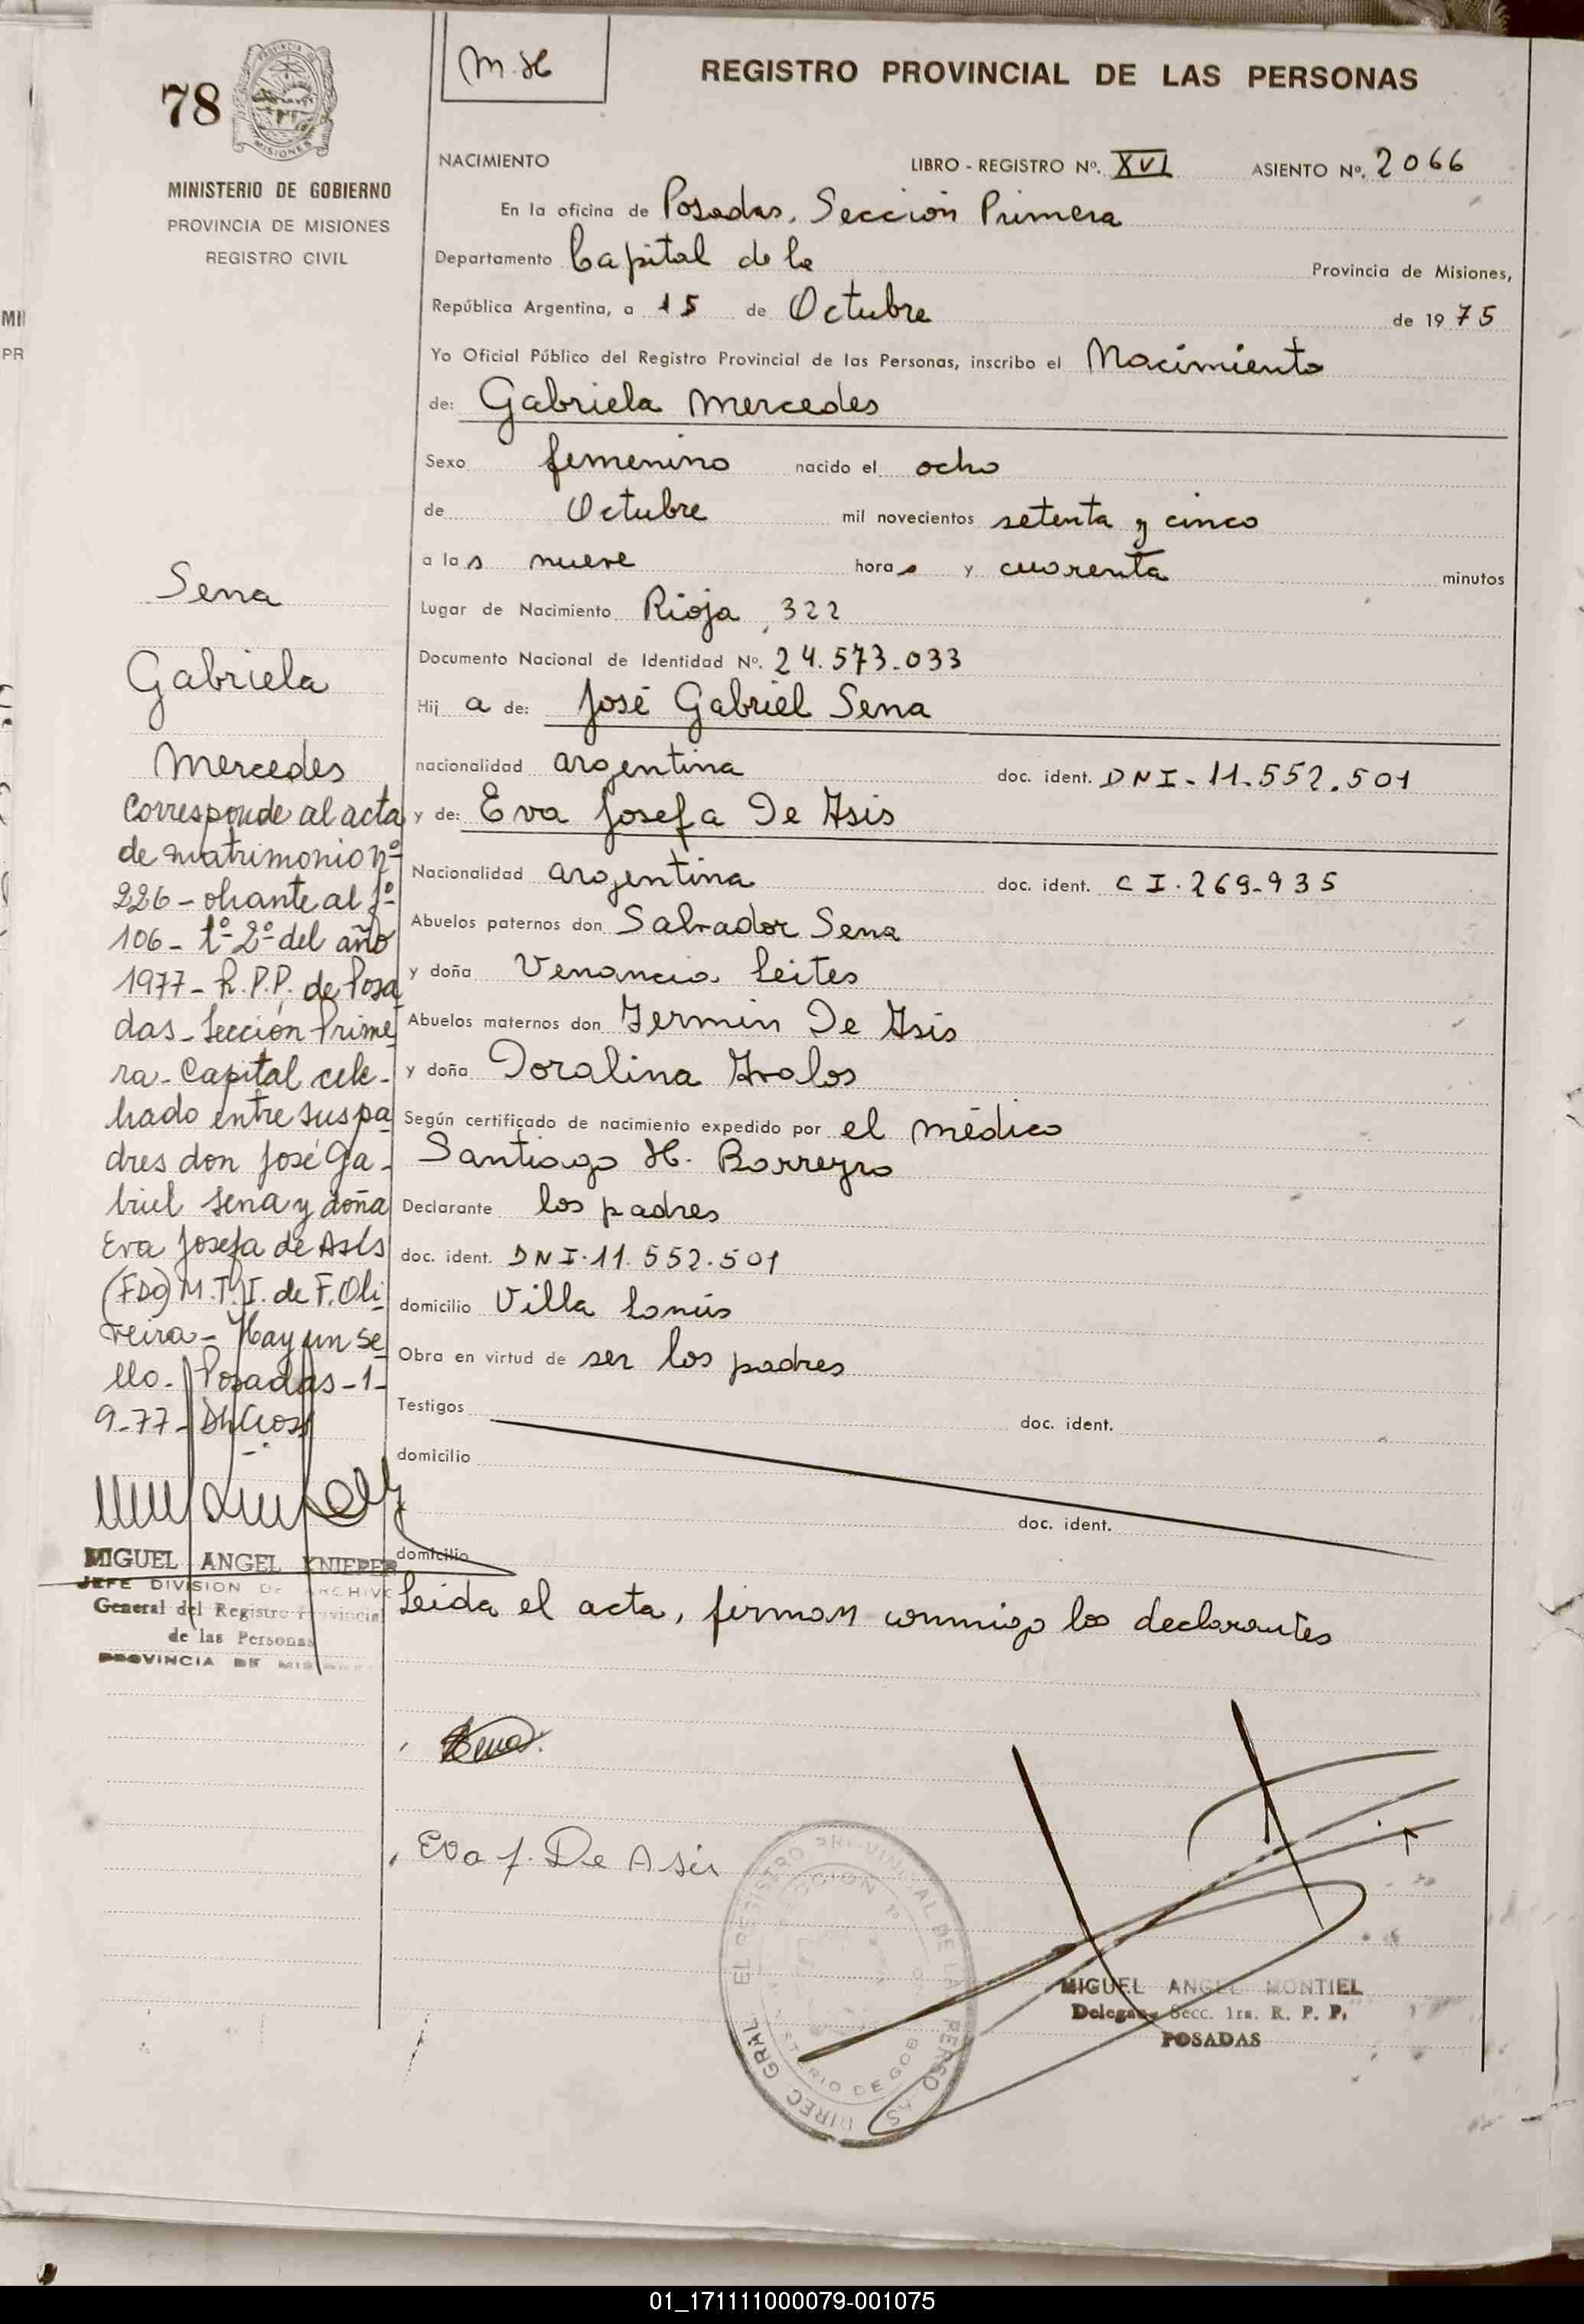 78
M.H
REGISTRO PROVINCIAL DE LAS PERSONAS
PROVINCIA DE
MISIONES
MINISTERIO DE GOBIERNO
PROVINCIA DE MISIONES
REGISTRO CIVIL
NACIMIENTO LIBRO - REGISTRO Nº. XVI ASIENTO Nº. 2066
En la oficina de Posadas, Sección Primera
Departamento Capital de la Provincia de Misiones,
República Argentina, a 15 de Octubre de 1975
Yo Oficial Público del Registro Provincial de las Personas, inscribo el Nacimiento
de: Gabriela Mercedes
Sexo femenino nacido el ocho
de Octubre mil novecientos setenta y cinco
a las nueve horas y cuarenta minutos
Lugar de Nacimiento Rioja, 322
Documento Nacional de Identidad Nº. 24.573.033
Hija de: José Gabriel Sena
nacionalidad argentina doc. ident. DNI-11.552.501
y de: Eva Josefa De Asis
Nacionalidad argentina doc. ident. CI.269-935
Abuelos paternos don Salvador Sena
y doña Venancia Leites
Abuelos maternos don Fermin De Asis
y doña Doralina Avalos
Según certificado de nacimiento expedido por el médico
Santiago H. Borreyro
Declarante los padres
doc. ident. DNI.11.552.501
domicilio Villa Lanús
Obra en virtud de ser los padres
Testigos doc. ident.
domicilio
doc. ident.
domicilio
Leida el acta, firman conmigo los declarantes
Sena
Gabriela
Mercedes
Corresponde al acta
de matrimonio nº
226 - obrante al fº
106 - tº 2º del año
1977 - R.P.P. de Posa
das - Sección Prime
ra - Capital cele-
brado entre sus pa
dres don José Ga-
briel Sena y doña
Eva Josefa de Asis
(FDO) M.T.I. de F. Oli
veira - Hay un se
llo. Posadas - 1-
9-77-
MIGUEL ANGEL KNIEPER
JEFE DIVISION DE ARCHIVO
General del Registro Provincial
de las Personas
PROVINCIA DE MISIONES
Sena
Eva J. De Asis
DIREC. GRAL. EL REGISTRO PROVINCIAL DE LAS PERSONAS
SECCION 1º
MINISTERIO DE GOB
MIGUEL ANGEL MONTIEL
Delegado Secc. 1ra. R. P. P.
POSADAS
MI
PR
01_171111000079-001075